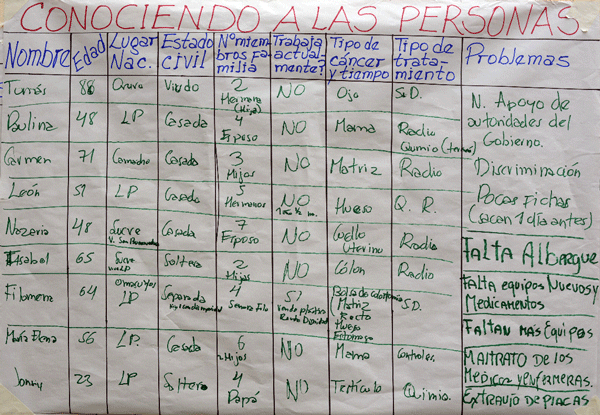 CONOCIENDO A LAS PERSONAS.
Nombre Edad Lugar Nac. Estado civil Nº miembros familia Trabaja actualmente? Tipo de cáncer y tiempo Tipo de tratamiento Problemas
88 Oruro Viudo 2 Hermana (Hija) NO Ojo S.D.
Paulina 48 LP Casada 4 Esposo NO Mama Radio Quimio
Carmen 71 Camacho Casada 3 Hijos NO Matriz Radio
León 51 LP Casado 5 Hermanos NO Hueso Q. R.
Nazaria 48 Sucre Casada 7 Esposo NO Cuello Uterino Radio
Isabel 65 Sucre LP Soltera 2 Hijos NO Cólon Radio
Filomena 64 Omasuyos LP Separada 4 SI Matriz Recto Hueso S.D.
María Elena 56 LP. Casada 6 2 Hijos NO Mama Controles.
Jonny 23 LP Soltero 4 Papá NO Testículo Quimio.
N. Apoyo de
autoridades del
Gobierno.
Discriminación
Pocas Fichas
(sacan 1 día antes)
FALTA Albergue
Falta equipos Nuevos y
Medicamentos
FALTAN MAS Equipos
MALTRATO DE LOS
MEDICOS y ENFERMERAS.
EXTRAVIO DE PLACAS